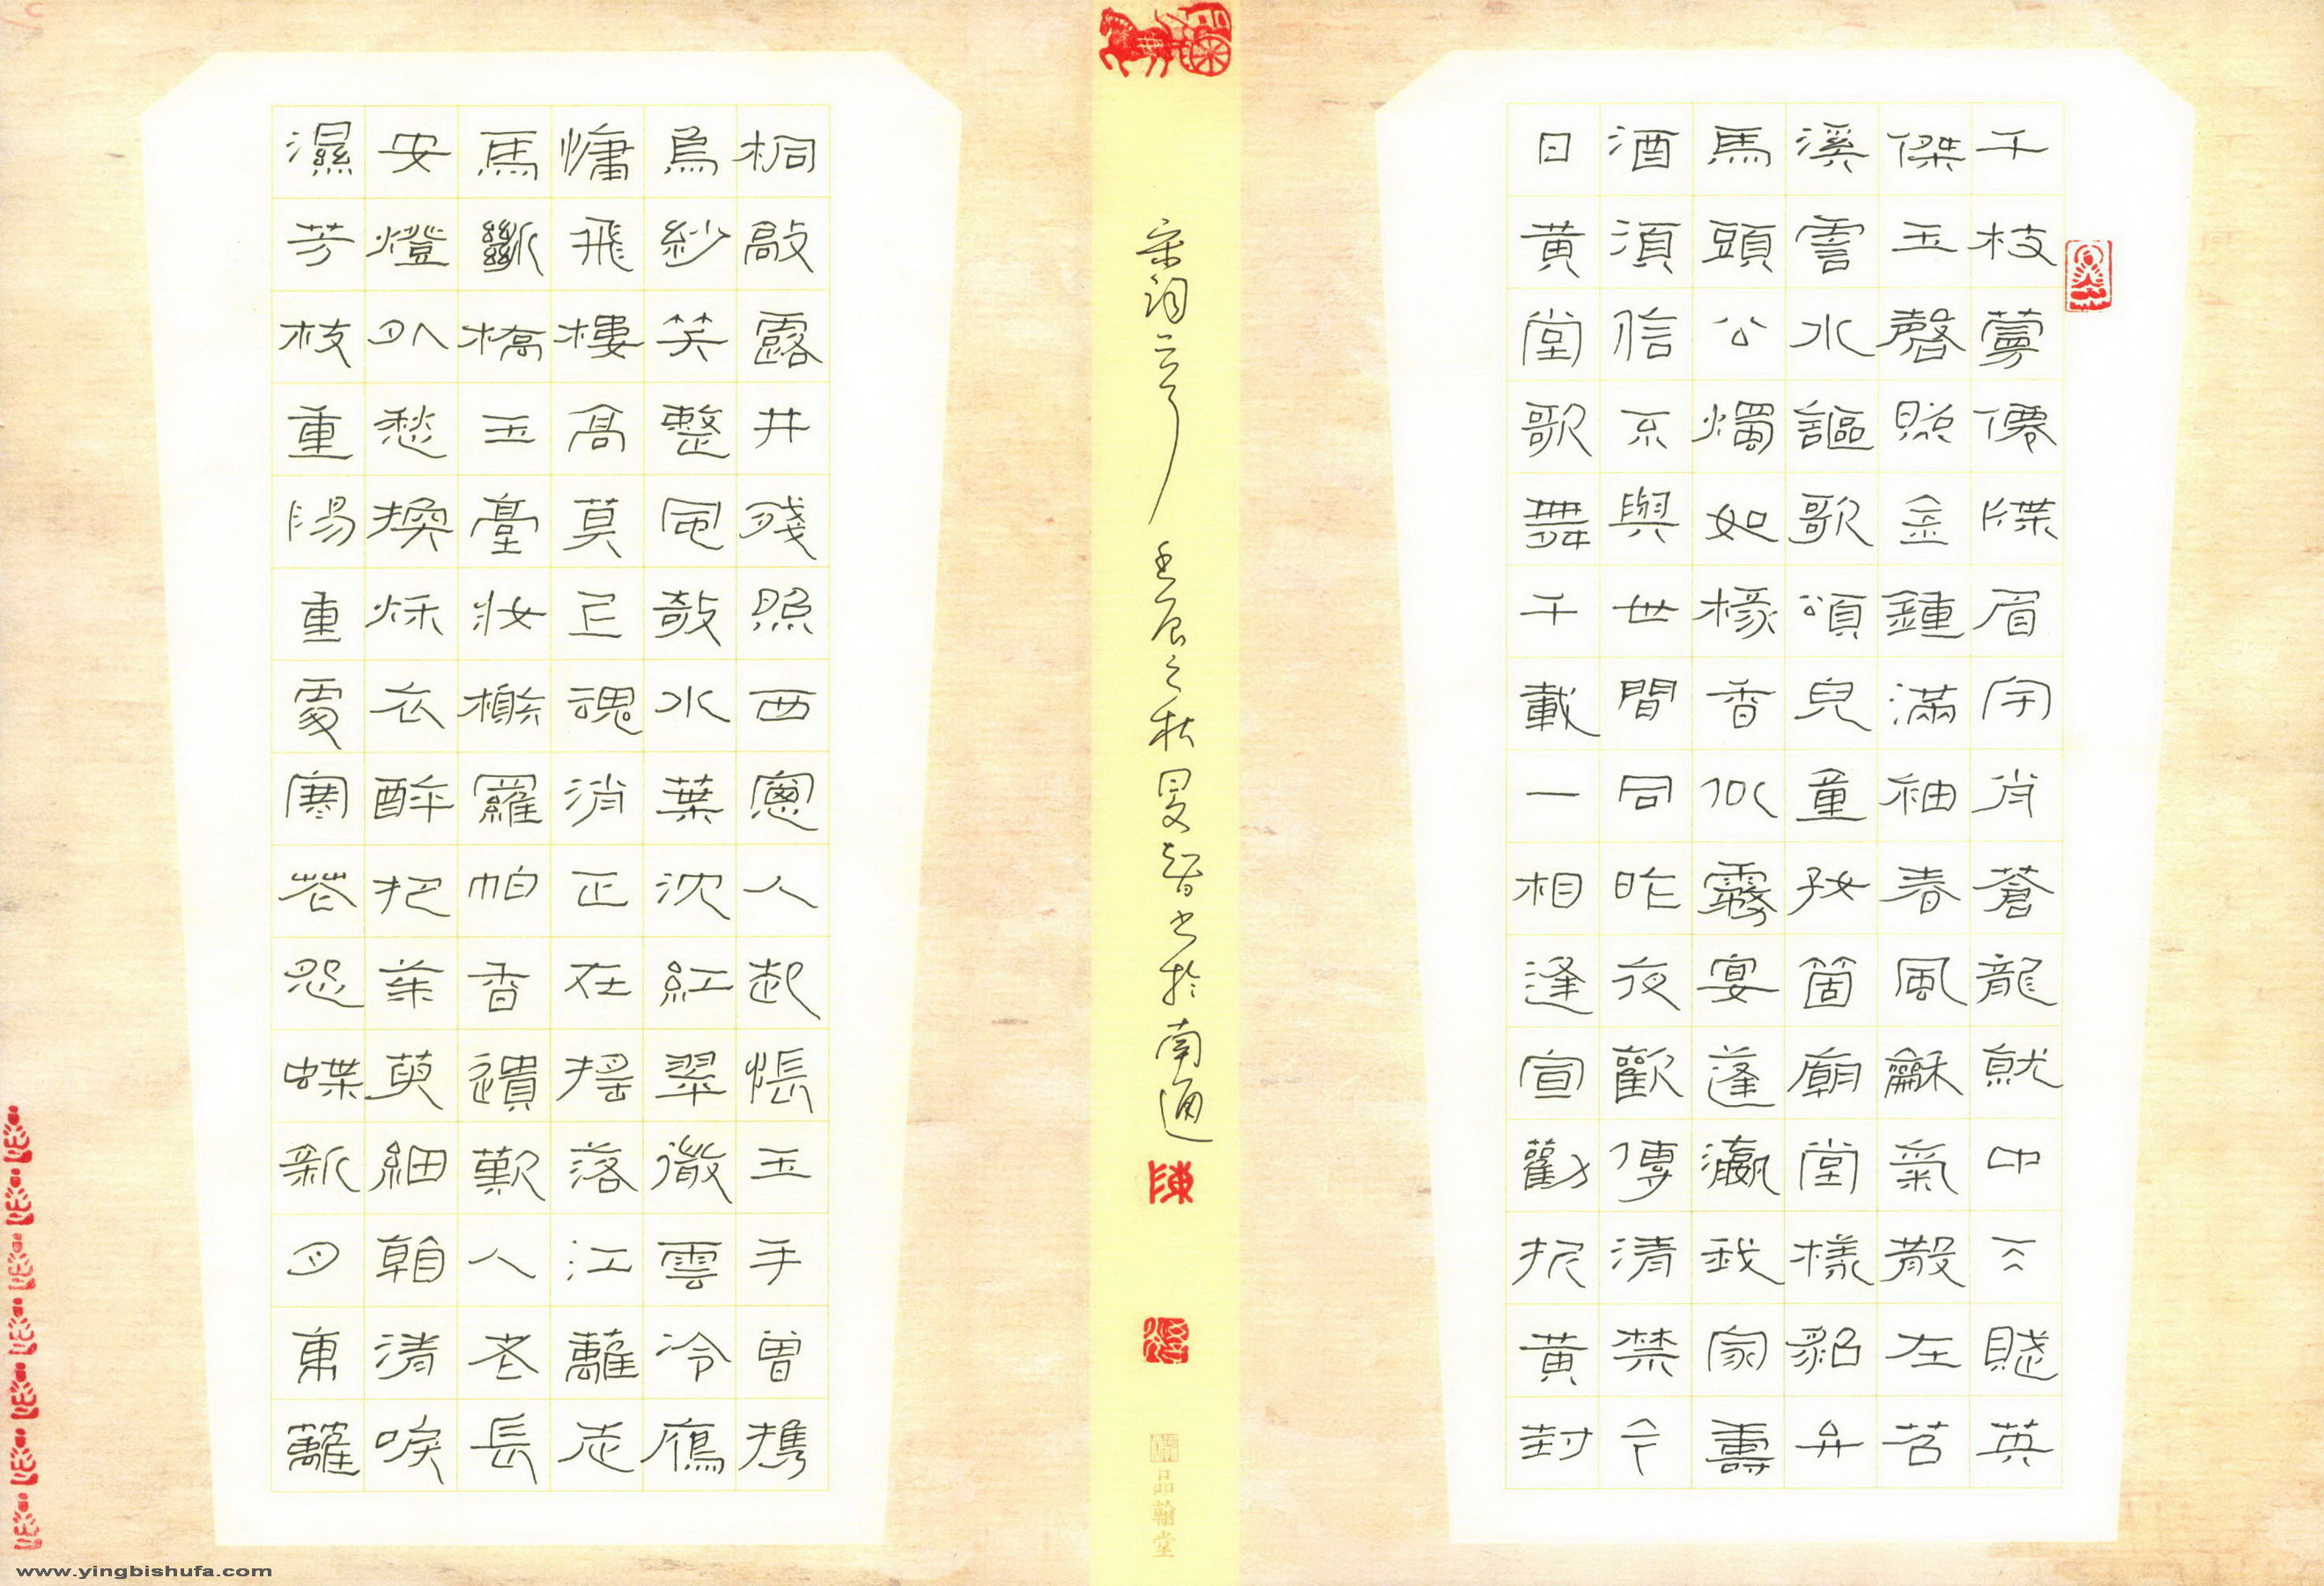 千枝萼僊牒眉宇肖蒼龍就中不賤英
傑玉磬照金鍾滿袖春風龢氣散在苕
溪霅水謳歌頌兒童好箇廟堂樣貂弁
馬頭公燭如椽香似霧宴蓬瀛我家壽
酒須信不與世間同昨夜歡傳清禁今
日黄堂歌舞千載一相逢宣勸拆黄封
宋詞二首 壬辰之秋旻智書於南通
陳
品翰堂
桐敲露井殘照西窗人起悵玉手曾攜
烏紗笑整風欹水葉沈紅翠微雲冷雁
慵飛樓高莫上魂消正在搖落江蘺走
馬斷橋玉臺妝榭羅帕香遺歎人老長
安燈外愁換秋衣醉把茱萸細看清淚
濕芳枝重陽重處寒花怨蝶新月東蘺
www.yingbishufa.com